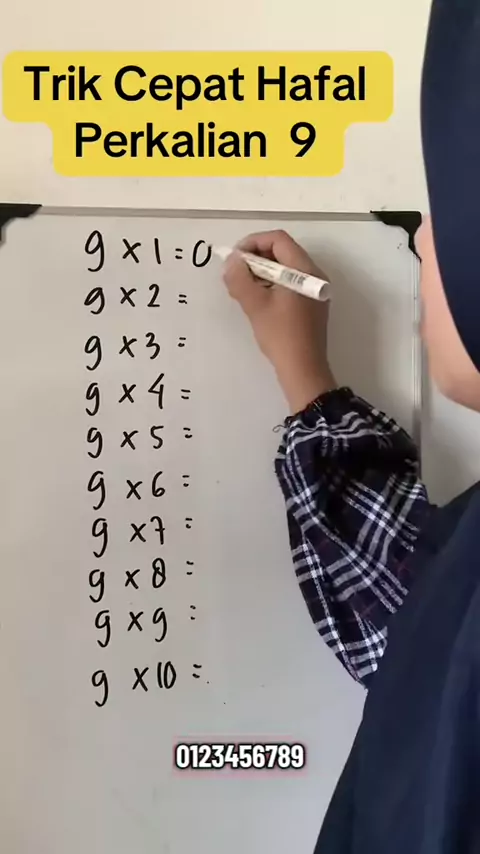 Trik Cepat Hafal
Perkalian 9
9 x 1 = 0
9 x 2 =
9 x 3 =
9 x 4 =
9 x 5 =
9 x 6 =
9 x 7 =
9 x 8 =
9 x 9 =
9 x 10 =
0123456789